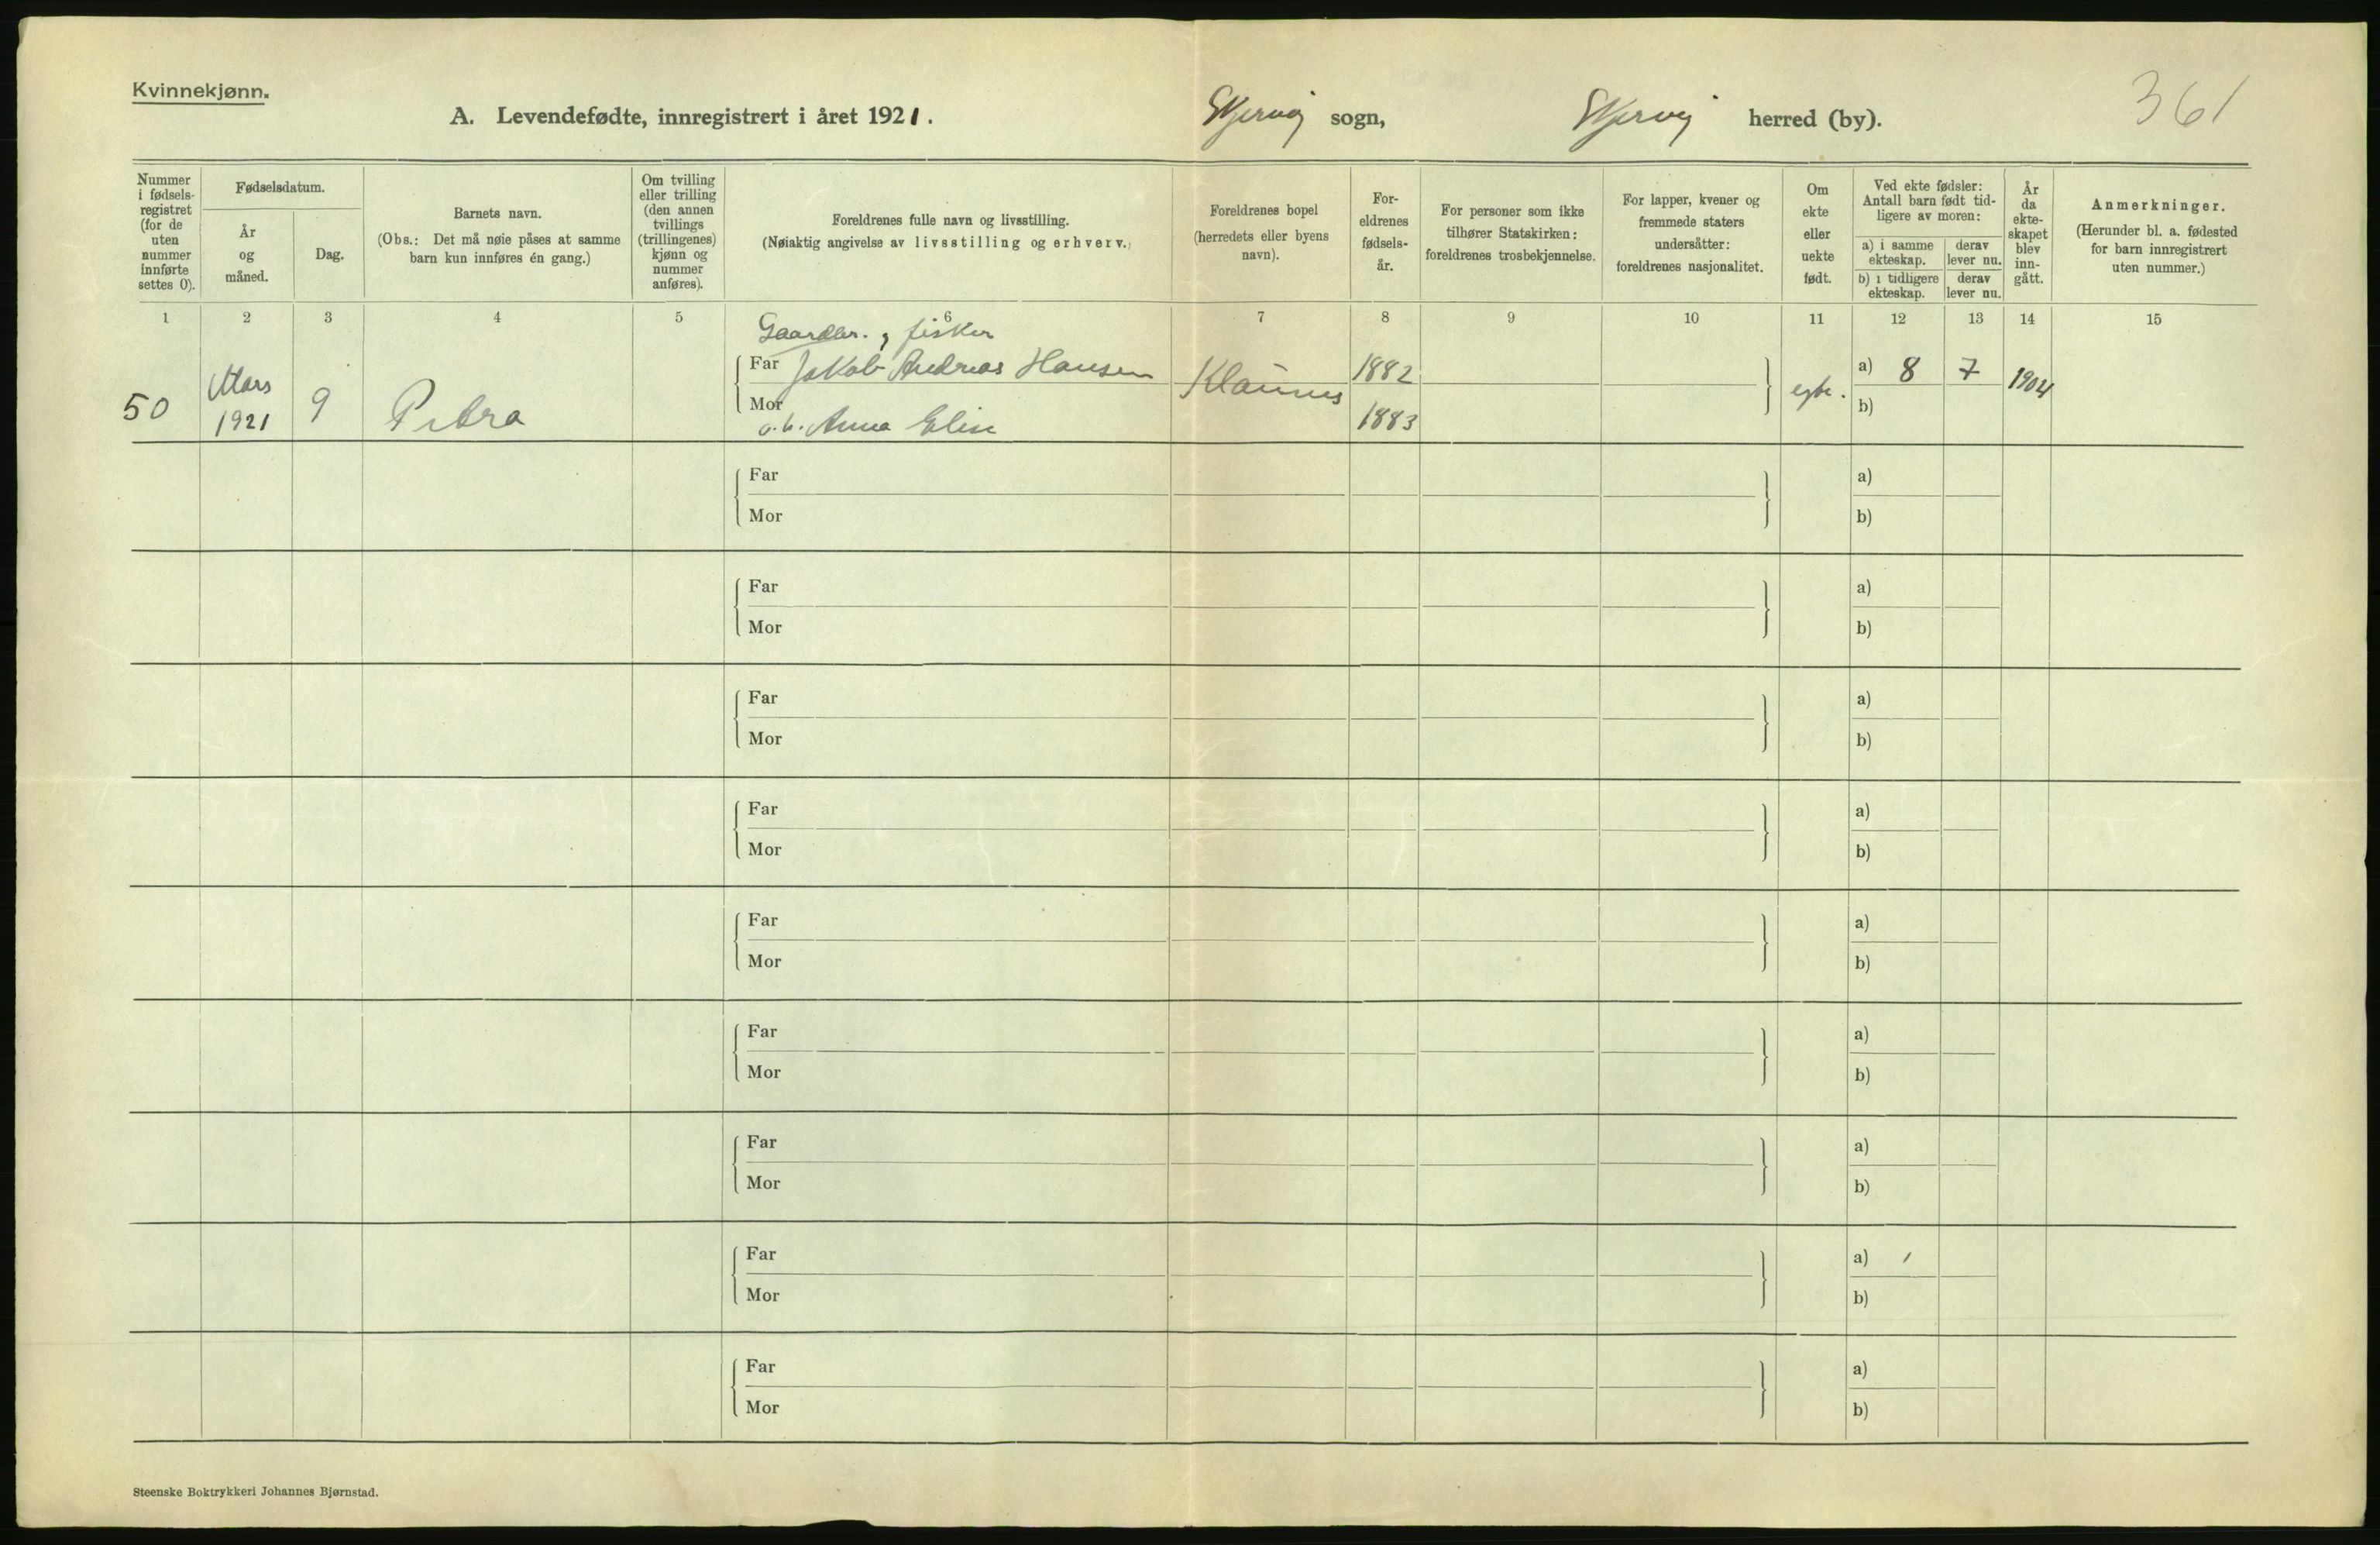 Kvinnekjønn.
A. Levendefødte, innregistrert i året 1921.
Skjervøy sogn, Skjervøy herred (by).
361
Nummer i fødselsregistret (for de uten nummer innførte settes 0).
Fødselsdatum.
År og måned.
Dag.
Barnets navn.
(Obs.: Det må nøie påses at samme barn kun innføres én gang.)
Om tvilling eller trilling (den annen tvillings (trillingenes) kjønn og nummer anføres).
Foreldrenes fulle navn og livsstilling.
(Nøiaktig angivelse av livsstilling og erhverv.)
Foreldrenes bopel (herredets eller byens navn).
Foreldrenes fødselsår.
For personer som ikke tilhører Statskirken: foreldrenes trosbekjennelse.
For lapper, kvener og fremmede staters undersåtter: foreldrenes nasjonalitet.
Om ekte eller uekte født.
Ved ekte fødsler: Antall barn født tidligere av moren:
a) i samme ekteskap.
derav lever nu.
b) i tidligere ekteskap.
derav lever nu.
År da ekteskapet blev inngått.
Anmerkninger.
(Herunder bl. a. fødested for barn innregistrert uten nummer.)
1 2 3 4 5 6 7 8 9 10 11 12 13 14 15
Gaardbr., fisker
50 Mars 1921 9 Petra
Far Jakob Andreas Hansen 1882
Mor o.h. Anna Elise 1883
egte. a) 8 7 1904
b)
Far a)
Mor b)
Far a)
Mor b)
Far a)
Mor b)
Far a)
Mor b)
Far a)
Mor b)
Far a)
Mor b)
Far a)
Mor b)
Far a)
Mor b)
Far a)
Mor b)
Steenske Boktrykkeri Johannes Bjørnstad.